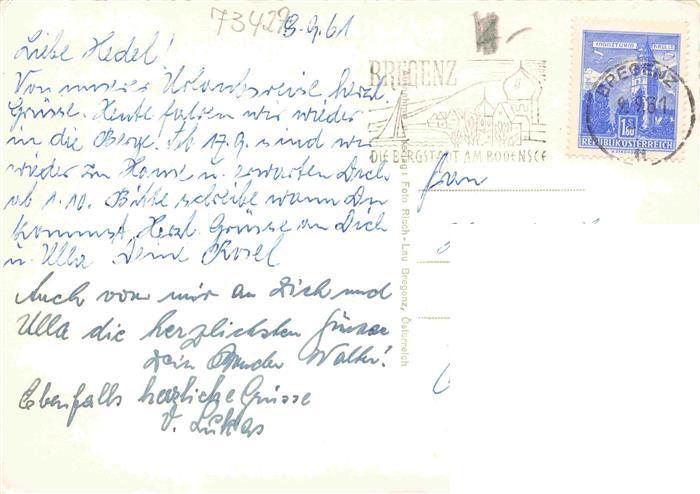 73429
9.9.61
Liebe Hedel!
Von unserer Urlaubsreise herzl.
Grüsse. Heute fahren wir wieder
in die Berge. Ab 17.9. sind wir
wieder zu Hause u. erwarten Dich
ab 1.10. Bitte schreibe wann Du
kommst. Herzl. Grüsse an Dich
u. Ulla Deine Rosel
Auch von mir an Dich und
Ulla die herzlichsten Grüsse
Dein Bruder Walter!
Ebenfalls herzliche Grüsse
V. Lukas
BREGENZ
DIE BERGSTADT AM BODENSEE
Foto Risch-Lau Bregenz, Österreich
Frau
MÜNZTURM HALL
1.80
REPUBLIK ÖSTERREICH
BREGENZ
9.9.61